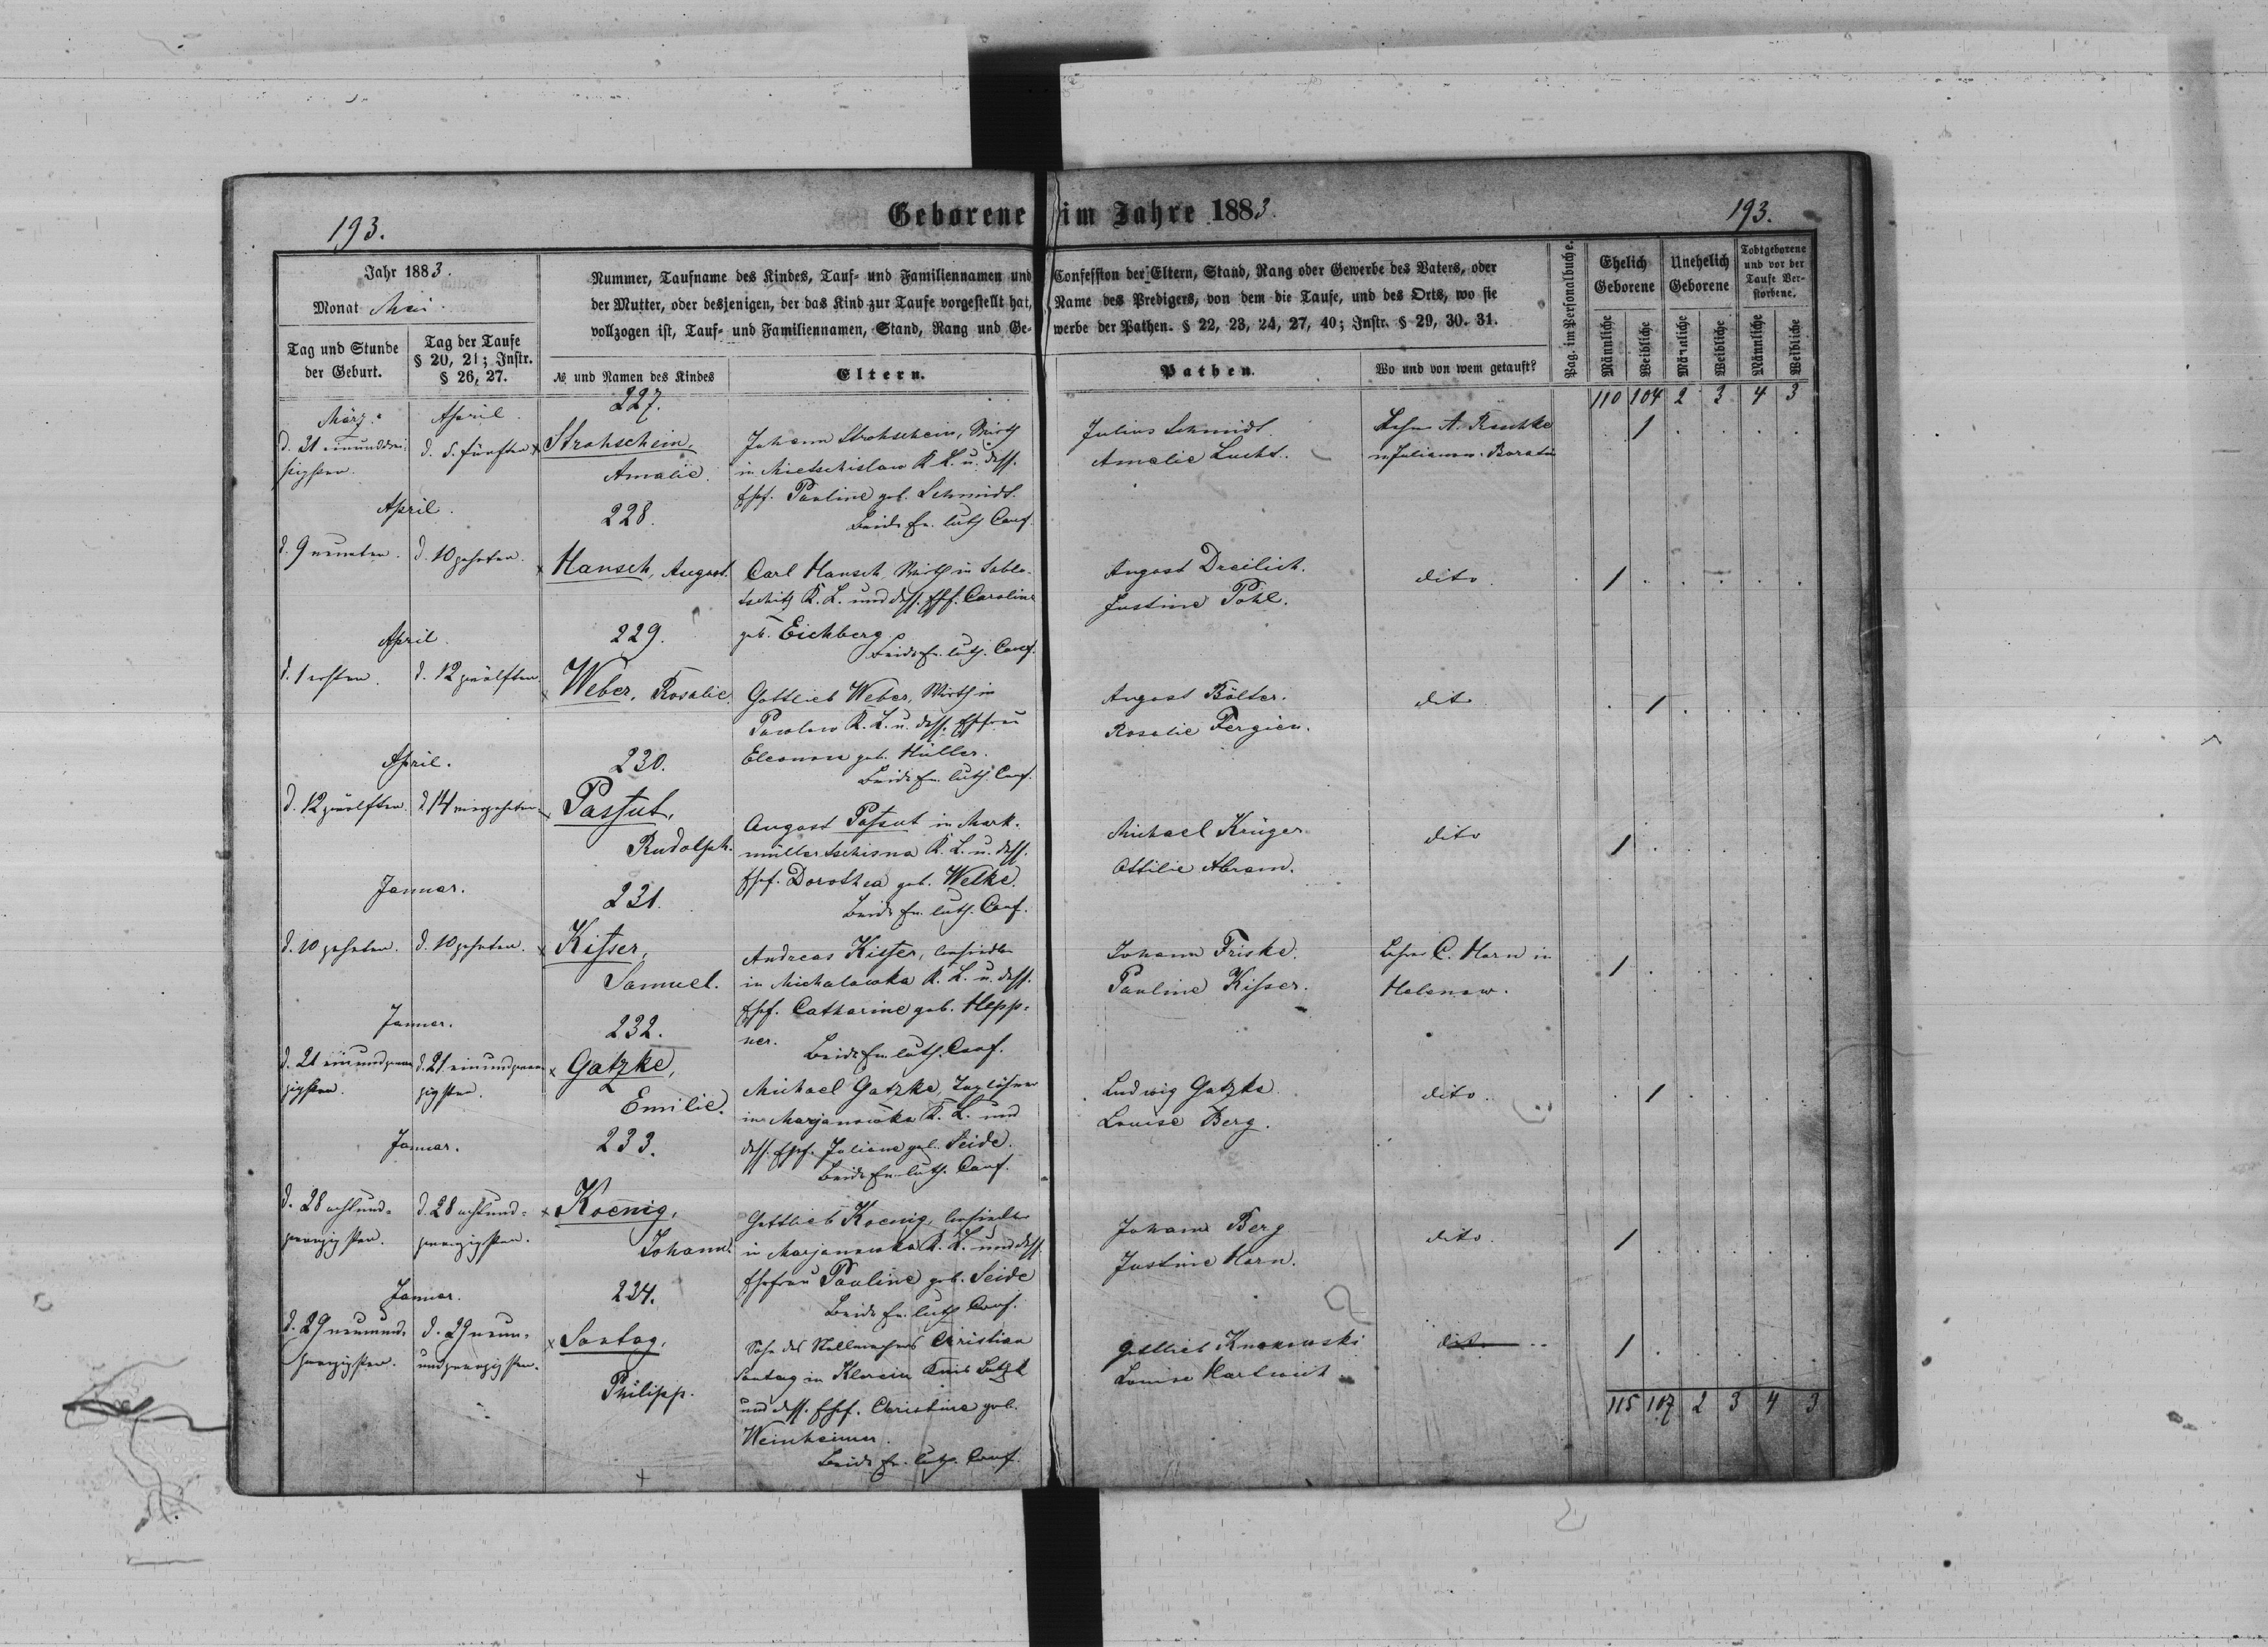 193.
Geborene im Jahre 1883.
193.
Jahr 1883.
Monat Mai.
Tag und Stunde der Geburt.
Tag der Taufe § 20, 21; Instr. § 26, 27.
Nummer, Taufname des Kindes, Tauf- und Familiennamen und Confession der Eltern, Stand, Rang oder Gewerbe des Vaters, oder
der Mutter, oder desjenigen, der das Kind zur Taufe vorgestellt hat, Name des Predigers, von dem die Taufe, und des Orts, wo sie
vollzogen ist, Tauf- und Familiennamen, Stand, Rang und Gewerbe der Pathen. § 22, 23, 24, 27, 40; Instr. § 29, 30. 31.
№ und Namen des Kindes
Eltern.
Pathen.
Wo und von wem getauft?
Pag. im Personalbuche.
Ehelich Geborene
Unehelich Geborene
Todtgeborene und vor der Taufe Verstorbene.
Männliche
Weibliche
Männliche
Weibliche
Männliche
Weibliche
110 104 2 3 4 3
März.
d. 21
April.
d. 5. fünften
227.
Strohschein,
Amalie.
Johann Strohschein, Wirth
in Mietschislaw K. L. u. dess.
Ehef. Pauline geb. Schmidt.
Beide Ev. luth Conf.
Julius Schmidt.
Amalie Lucht.
Lehrer A. Reschke
1
April.
d. 9 neunten.
d. 10 zehnten.
228.
Hansch, August.
Carl Hansch, Wirth in
K. L. und dess. Ehf. Caroline
geb. Eichberg
Beide Ev. luth. Conf.
August Dreilich.
Justine Pohl.
dito.
1
April.
d. 1 ersten.
d. 12 zwölften
229.
Weber, Rosalie.
Gottlieb Weber, Wirth in
K. L. u. dess. Ehefrau
Eleonore geb. Müller.
Beide Ev. luth. Conf.
August Bölter.
Rosalie Fergien.
dito
1
April.
d. 12 zwölften.
d. 14 vierzehnten.
230.
Passut,
Rudolph.
August Passut in Mark-
müllertschisna K. L. u. dess.
Ehef. Dorothea geb. Welke.
Beide Ev. luth. Conf.
Michael Krüger
Ottilie Abram.
dito
1
Januar.
d. 10 zehnten.
d. 10 zehnten.
231.
Kisser,
Samuel.
Andreas Kisser, Ansiedler
in Michalowka K. L. u. dess.
Ehef. Catharine geb. Hepp-
ner.
Beide Ev. luth. Conf.
Johann Friske.
Pauline Kisser.
Lehrer C. Horn in
Helenow.
1
Januar.
d. 21 einundzwan
zigsten.
d. 21 einundzwan
zigsten.
232.
Gatzke,
Emilie.
Michael Gatzke, Taglöhner
in Marjanowka K. L. und
dess. Ehef. Juliane geb. Seide.
Beide Ev. luth. Conf.
Ludwig Gatzke
Louise Berg.
dito.
1
Januar.
d. 28 achtund-
zwanzigsten.
d. 28 achtund-
zwanzigsten.
233.
Koenig,
Johann.
Gottlieb Koenig, Ansiedler
in Marjanowka K. L. und dess.
Ehefrau Pauline geb. Seide
Beide Ev. luth. Conf.
Johann Berg
Justine Horn.
dito.
1
Januar.
d. 29 neunund-
zwanzigsten.
d. 29 neun-
undzwanzigsten.
234.
Sontag,
Philipp.
Sohn des Stellmachers Christian
Sontag in
und dess. Ehef. Christine geb.
Weinheimer.
Beide Ev. luth. Conf.
Gottlieb
Louise Hartwich
dito
1
115 107 2 3 4 3